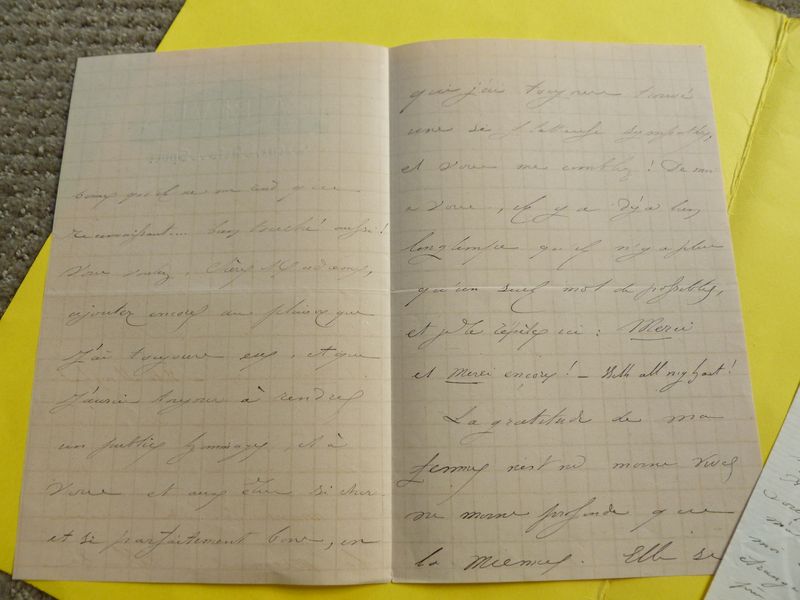 beaux qu'il ne me rend que
reconnaissant... bien touché aussi!
Vous voulez, chère Madame,
ajouter encore au plaisir que
J'ai toujours eu, et que
J'aurai toujours à rendre
un public hommage, et à
vous et aux êtres si chers
et si parfaitement bons, en
qui j'ai toujours trouvé
une si flatteuse sympathie,
et vous me comblez! De moi
à vous, il y a déjà bien
longtemps qu'il n'y a plus
qu'un seul mot de possible,
et je le répète ici: Merci
et Merci encore! – With all my heart!
La gratitude de ma
femme n'est ni moins vive
ni moins profonde que
la mienne. Elle se